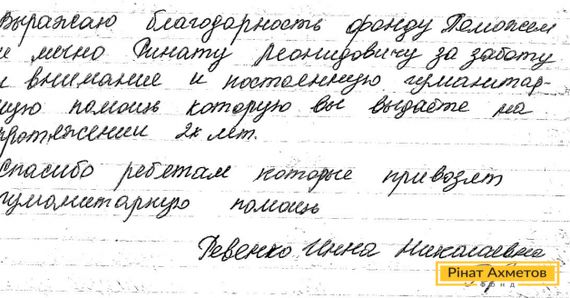 Выражаю благодарность фонду Поможем
и лично Ринату Леонидовичу за заботу
и внимание и постоянную гуманитар-
ную помощь которую вы выдаёте на
протяжении 2х лет.
Спасибо ребятам которые привозят
гуманитарную помощь
Ревенко Инна Николаевна
Рінат Ахметов
Фонд